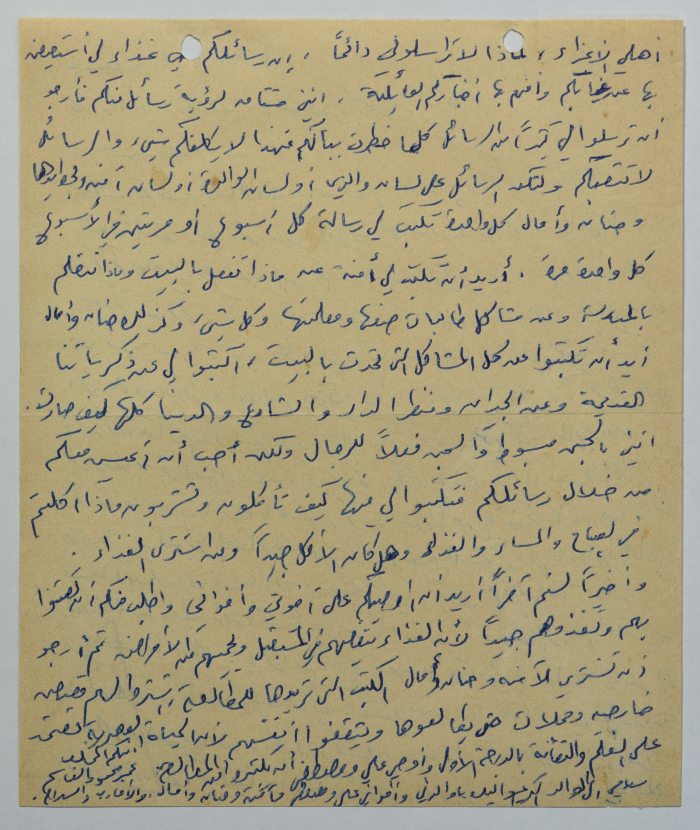 أهلي الأعزاء، لماذا لا تراسلوني دائماً، إن رسائلكم هي غذاء لي أستعيض
بها عن غيابكم وأفهم بها أخباركم العائلية، إنني مشتاق لرؤية رسائل منكم فأرجو
أن ترسلوا لي كثيراً من الرسائل كلما خطرت ببالكم فهذا لا يكلفكم شيء والرسائل
لا تتعبكم ولتكن الرسائل على لسان والدي أو لسان الوالدة أو لسان آمنة
وحنان وآمال كل واحدة تكتب لي رسالة كل أسبوع أو مرتين في الأسبوع
كل واحدة مرة. أريد أن تكتب لي آمنة عن ماذا تفعل بالبيت وماذا تتعلم
بالمدرسة وعن مشاكل طالبات صفها ومعلمتها وكل شيء وكذلك حنان وآمال
أريد أن تكتبوا عن كل المشاكل التي تحدث بالبيت، اكتبوا لي عن ذكرياتنا
القديمة وعن الجيران ومنظر الدار والشارع والدنيا كلها كيف صارت.
إنني بالسجن مبسوط والسجن فعلاً للرجال ولكن أحب أن أعيش معكم
من خلال رسائلكم فتكتبوا لي فيها كيف تأكلون وتشربون ماذا أكلتم
في الصباح والمساء والغذاء وهل كان الأكل جيداً ومن اشترى الغذاء.
وأخيراً لستم آخراً أريد أن أوصيكم على أخوتي وأخواتي وأطلب منكم أن تعتنوا
بهم وتغذوهم جيداً لأن الغذاء ينفعهم في المستقبل ويحميهم من الأمراض ثم أرجو
أن تشتري لآمنة وحنان وآمال الكتب التي تريدها للمطالعة، اشتروا لهم قصص
خارجية ومجلات حتى يطالعوها ويثقفوا أنفسهم لأن الحياة العصرية تعتمد
على العلم والثقافة بالدرجة الأولى وأوصي علي ومصطفى أن يكثروا من المطالعة
سلامي إلى الوالد الكريم والوالدة وأخواني علي ومصطفى وآمنة وحنان وآمال والأقارب والسلام.